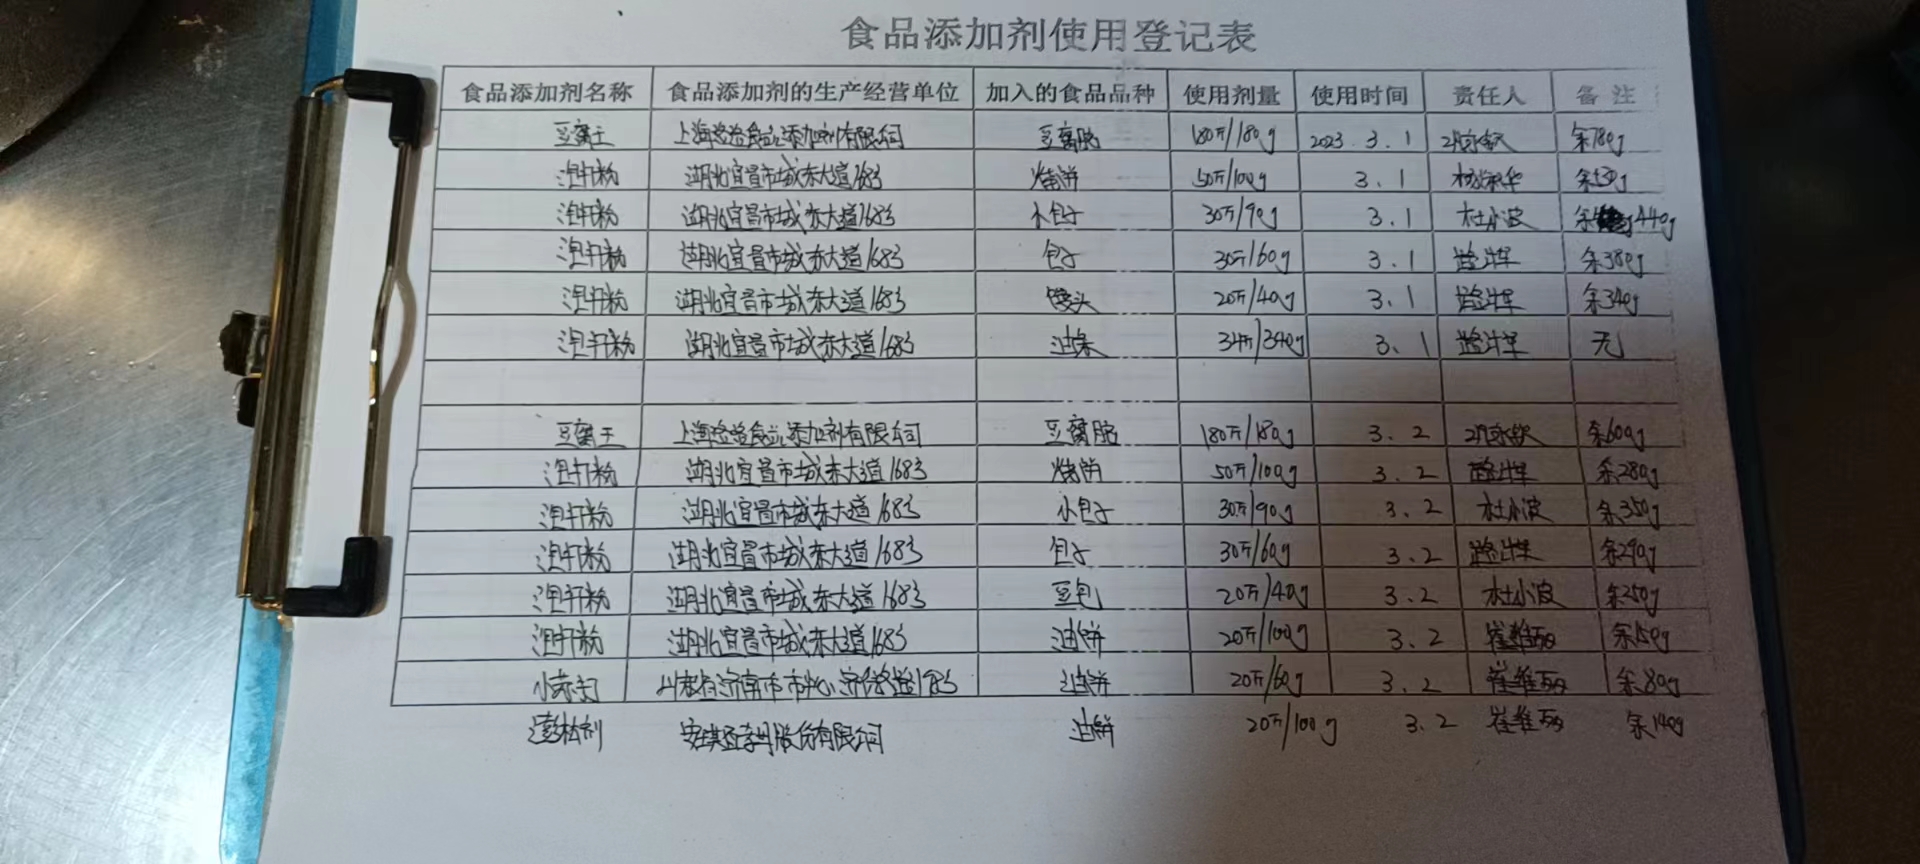 食品添加剂使用登记表
食品添加剂名称 食品添加剂的生产经营单位 加入的食品品种 使用剂量 使用时间 责任人 备注
豆腐王 上海 食品添加剂有限公司 豆腐脑 180斤/180g 2023.3.1 余780g
泡打粉 湖北宜昌市城东大道168号 烧饼 50斤/100g 3.1 余530g
泡打粉 湖北宜昌市城东大道168号 小包子 30斤/90g 3.1 杜小波 余440g
泡打粉 湖北宜昌市城东大道168号 包子 30斤/60g 3.1 余380g
泡打粉 湖北宜昌市城东大道168号 馒头 20斤/40g 3.1 余340g
泡打粉 湖北宜昌市城东大道168号 油条 34斤/340g 3.1 无
豆腐王 上海 食品添加剂有限公司 豆腐脑 180斤/180g 3.2 余600g
泡打粉 湖北宜昌市城东大道168号 烧饼 50斤/100g 3.2 余280g
泡打粉 湖北宜昌市城东大道168号 小包子 30斤/90g 3.2 杜小波 余350g
泡打粉 湖北宜昌市城东大道168号 包子 30斤/60g 3.2 余290g
泡打粉 湖北宜昌市城东大道168号 豆包 20斤/40g 3.2 杜小波 余250g
泡打粉 湖北宜昌市城东大道168号 油饼 20斤/100g 3.2 崔维丽 余150g
小苏打 山东省济南市市中 油饼 20斤/60g 3.2 崔维丽 余80g
澎松剂 安琪酵母股份有限公司 油饼 20斤/100g 3.2 崔维丽 余140g